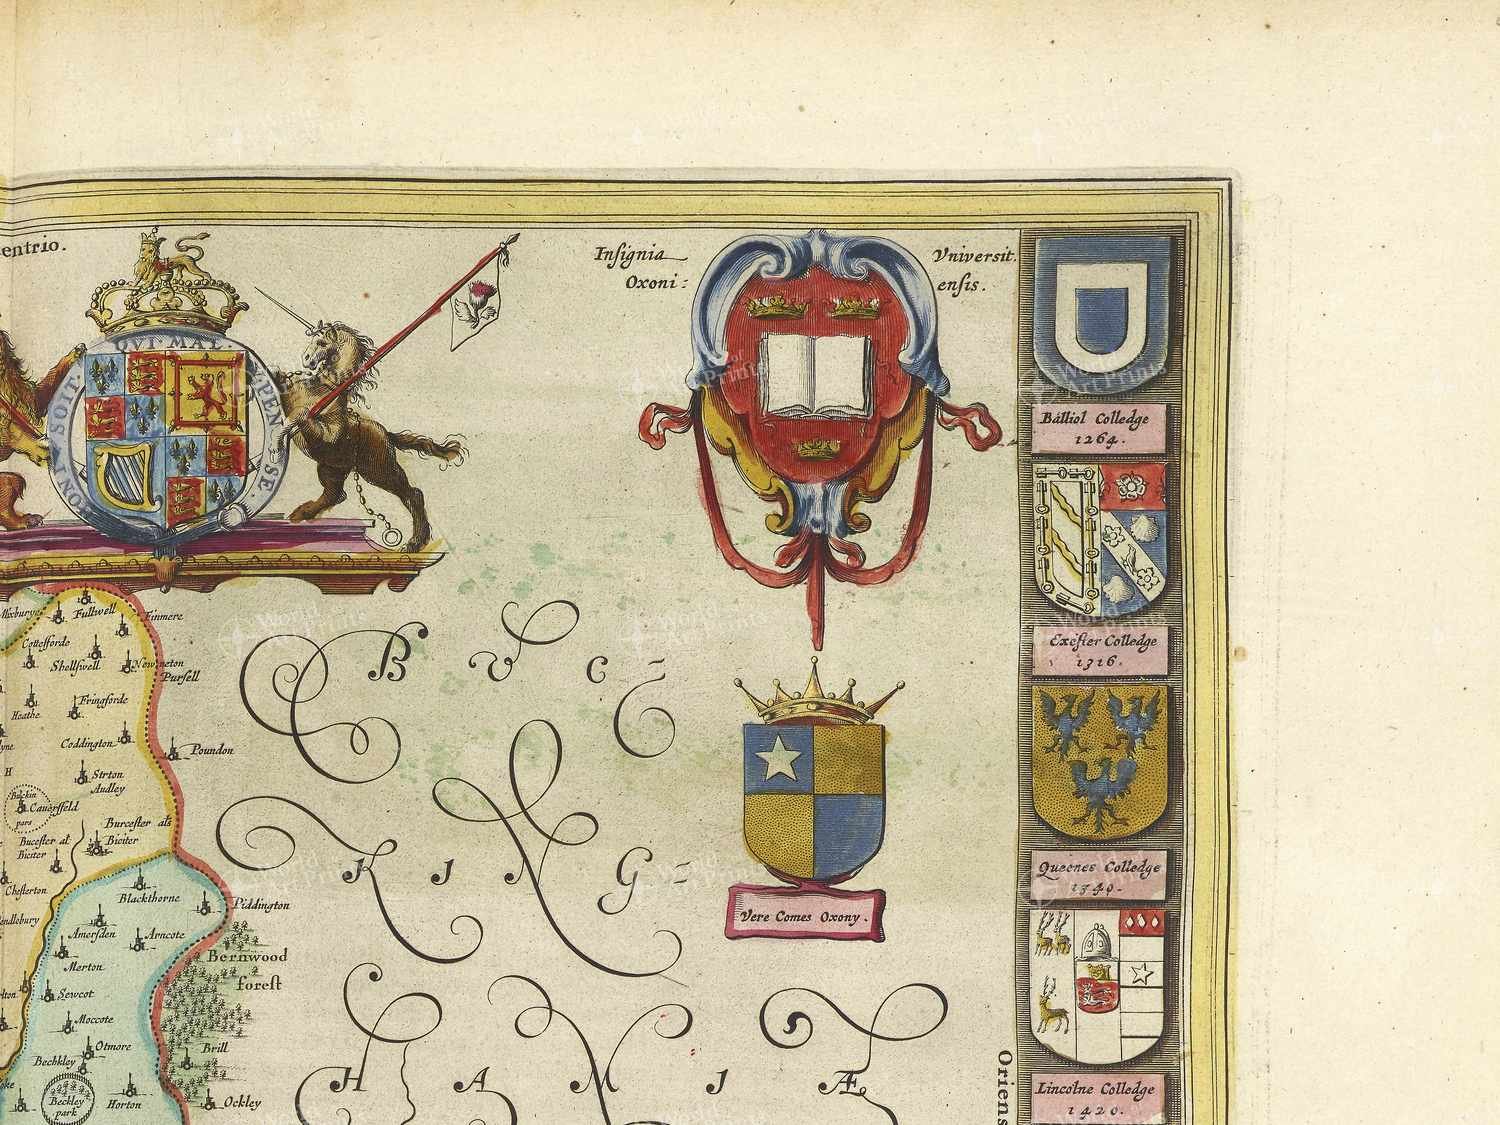 entrio.
QVI MAL
HONI SOIT.
PEN SE.
Insignia
Oxoni:
Vniversit.
ensis.
Balliol Colledge
1264.
Exester Colledge
1316.
Queenes Colledge
1340.
Lincolne Colledge
1420.
Vere Comes Oxony.
Mixburye
Fullwell
Finmere
Cottesforde
Shellswell
Newneton
Pursell
Heathe
Fringforde
Coddington
Poundon
Strton
Audley
H
Cauersfeld
pars
Burcester als
Biciter
Bucester al.
Bicester
Chesterton
endlebury
Blackthorne
Piddington
Amersden
Arncote
Bernwood
forest
Merton
Sewcot
Moccote
Otmore
Brill
Bechkley
Beckley
park
Horton
Ockley
BVC-
KING-
HAMIÆ
Oriens